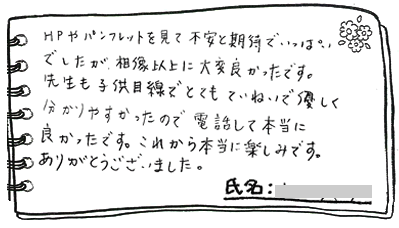 HPやパンフレットを見て不安と期待でいっぱい
でしたが、想像以上に大変良かったです。
先生も子供目線でとてもていねいで優しく
分かりやすかったので電話して本当に
良かったです。これから本当に楽しみです。
ありがとうございました。
氏名: